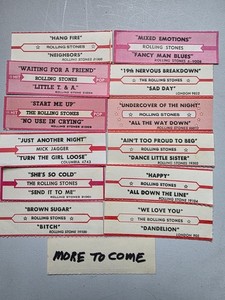 "HANG FIRE"
ROLLING STONES
"NEIGHBORS"
ROLLING STONES 21300
"WAITING FOR A FRIEND"
ROLLING STONES
"LITTLE T. & A."
ROLLING STONES
"START ME UP"
THE ROLLING STONES
"NO USE IN CRYING"
ROLLING STONES
"JUST ANOTHER NIGHT"
MICK JAGGER
"TURN THE GIRL LOOSE"
COLUMBIA 4743
"SHE'S SO COLD"
THE ROLLING STONES
"SEND IT TO ME"
ROLLING STONES
"BROWN SUGAR"
ROLLING STONES
"BITCH"
ROLLING STONES 19100
"MIXED EMOTIONS"
ROLLING STONES
"FANCY MAN BLUES"
ROLLING STONES
"19th NERVOUS BREAKDOWN"
THE ROLLING STONES
"SAD DAY"
LONDON 9823
"UNDERCOVER OF THE NIGHT"
ROLLING STONES
"ALL THE WAY DOWN"
ROLLING STONES
"AIN'T TOO PROUD TO BEG"
THE ROLLING STONES
"DANCE LITTLE SISTER"
ROLLING STONES 19302
"HAPPY"
THE ROLLING STONES
"ALL DOWN THE LINE"
ROLLING STONES
"WE LOVE YOU"
THE ROLLING STONES
"DANDELION"
LONDON 905
MORE TO COME